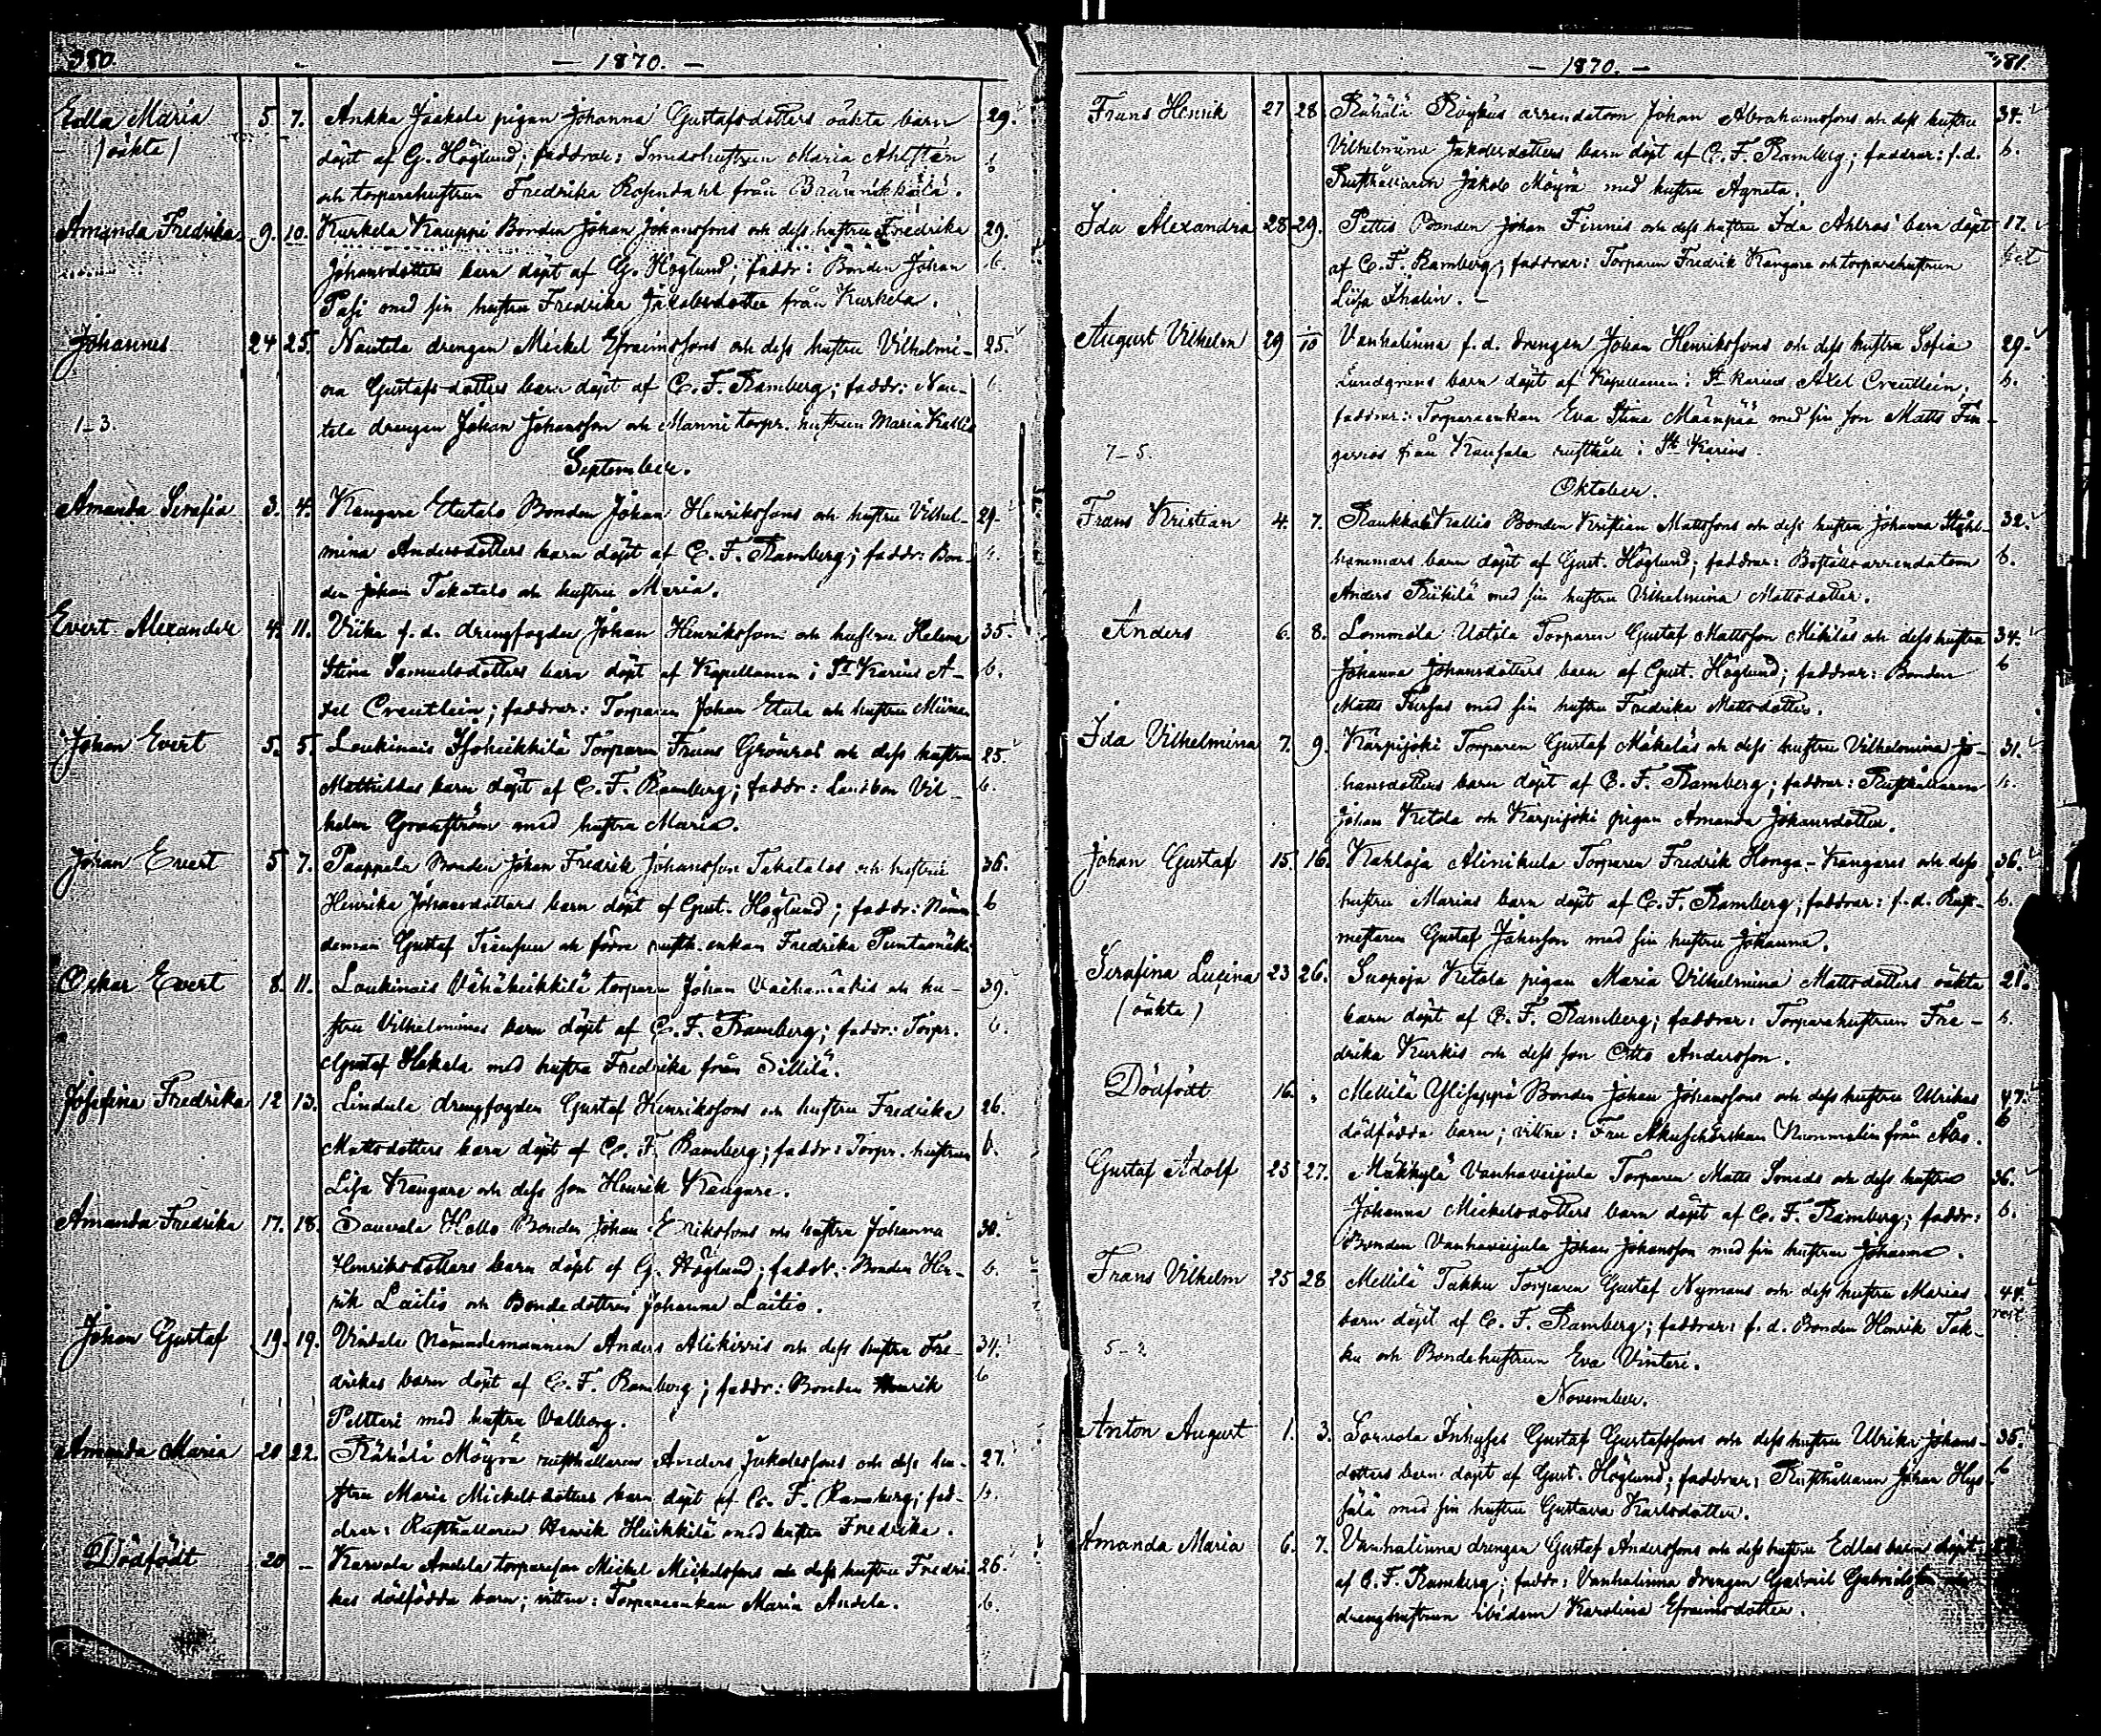 380.
— 1870. —
Edla Maria 5. 7. Ankka Jaakola pigan Johanna Gustafsdotters oäkta barn 29.
(oäkta) döpt af G. Höglund; faddrar: Smedshustrun Maria Ahlsten b.
och torparehustrun Fredrika Rosendahl från
Amanda Fredrika 9. 10. Kurkela Kauppi Bonden Johan Johanssons och dess hustru Fredrika 29.
Johansdotters barn döpt af G. Höglund; faddr: Bonden Johan b.
Pasi med sin hustru Fredrika Jakobsdotter från Kurkela.
Johannes 24 25. Nautela drengen Mickel Efraimssons och dess hustru Vilhelmi- 25.
na Gustafs-dotters barn döpt af C. F. Ramberg; faddr: Nau- b.
1–3. tela drengen Johan Johansson och Manni torpr. hustrun Maria Kallio
September.
Amanda Serafia 3. 4. Kangare Etutalo Bonden Johan Henrikssons och hustru Vilhel- 29.
mina Andersdotters barn döpt af C. F. Ramberg; faddr: Bon- b.
den Johan Takatalo och hustru Maria.
Evert Alexander 4. 11. Viika f. d. drengfogden Johan Henrikssons och hustru Helena 35.
Stina Samuelsdotters barn döpt af Kapellanen i St Karins A- b.
xel Creutlein; faddrar: Torparen Johan Etula och hustru
Johan Evert 5. 5. Loukinais Isoheikkilä Torparen Frans Grönroos och dess hustru 25.
Mathildas barn döpt af C. F. Ramberg; faddr: Landbon Vil- b.
helm Granström med hustru Maria.
Johan Evert 5 7. Paappala Bonden Johan Fredrik Johansson Takatalos och hustru 36.
Henrika Johansdotters barn döpt af Gust. Höglund; faddr: Nämn- b
deman Gustaf och förra rusth. enkan Fredrika Puntamäki
Oskar Evert 8. 11. Loukinais Vähäheikkilä torparen Johan Vähämäkis och hu- 39.
stru Vilhelminas barn döpt af C. F. Ramberg; faddr: Torpr. b.
Gustaf Hakala med hustru Fredrika från Sillilä.
Josefina Fredrika 12 13. Lindula drengfogden Gustaf Henrikssons och hustru Fredrika 26.
Mattsdotters barn döpt af C. F. Ramberg; faddr: Torpr. hustrun b.
Lisa Kangare och dess son Henrik Kangare.
Amanda Fredrika 17. 18. Sauvala Kallo Bonden Johan Erikssons och hustru Johanna 30.
Henriksdotters barn döpt af G. Höglund; faddr: Bonden Hen- b.
rik Laitio och Bondedottren Johanna Laitio.
Johan Gustaf 19. 19. Vintala Nämndemannen Anders Alikirris och dess hustru Fre- 34.
drikas barn döpt af C. F. Ramberg; faddr: Bonden Henrik b
Peltteri med hustru Valborg.
Amanda Maria 20 22. Rähälä Möyrä rusthållaren Anders Jakobssons och dess hu- 27.
stru Maria Mickelsdotters barn döpt af C. F. Ramberg; fad- b.
drar: Rusthållaren Henrik Heikkilä med hustru Fredrika.
Dödfödt 20 — Karvala Andela torparesonen Mickel Mickelssons och dess hustru Fredri- 26.
kas dödfödda barn; vittne: Torpareenkan Maria Andela. b.
381.
— 1870. —
Frans Henrik 27 28. Rähälä arrendatorn Johan Abrahamssons och dess hustru 34.
Vilhelmina Jakobsdotters barn döpt af C. F. Ramberg; faddrar: f. d. b.
Rusthållaren Jakob Möyrä med hustru Agneta.
Ida Alexandra 28 29. Pettis Bonden Johan Finnis och dess hustru Ida Ahlroos' barn döpt 17.
af C. F. Ramberg; faddrar: Torparen Fredrik Kangare och torparehustrun
Lisa Thalin. —
August Vilhelm 29 10 Vanhalinna f. d. drengen Johan Henrikssons och dess hustru Sofia 29.
Lundgrens barn döpt af Kapellanen i St Karins Axel Creutlein; b.
faddrar: Torpareenkan Eva Stina Mäenpää med sin son Matts Fin-
7–5. geroos från Kausala rusthåll i St Karins.
Oktober.
Frans Kristian 4. 7. Raukkala Kallio Bonden Kristian Mattssons och dess hustru Johanna Stål- 32.
hammars barn döpt af Gust. Höglund; faddrar: Boställsarrendatorn b.
Anders Riikilä med sin hustru Vilhelmina Mattsdotter.
Anders 6. 8. Lommola Uotila Torparen Gustaf Mattsson Mikiläs och dess hustru 34.
Johanna Johansdotters barn af Gust. Höglund; faddrar: Bonden b
Matts Tursas med sin hustru Fredrika Mattsdotter.
Ida Vilhelmina 7. 9. Kärpijoki Torparen Gustaf Mäkeläs och dess hustru Vilhelmina Jo- 31.
hansdotters barn döpt af C. F. Ramberg; faddrar: Rusthållaren b.
Johan Ketola och Kärpijoki pigan Amanda Johansdotter.
Johan Gustaf 15. 16. Kahloja Alinikula Torparen Fredrik Honga-Kangares och dess 36.
hustru Marias barn döpt af C. F. Ramberg; faddrar: f. d. Rust- b.
mestaren Gustaf Johnsson med sin hustru Johanna.
Serafina Lusina 23 26. Suopoja Ketola pigan Maria Vilhelmina Mattsdotters oäkta 21.
(oäkta) barn döpt af C. F. Ramberg; faddrar: Torparehustrun Fre- b.
drika Kurkis och dess son Otto Andersson.
Dödfödt 16. „ Mellilä Yliseppä Bonden Johan Johanssons och dess hustru Ulrikas 47.
dödfödda barn; vittne: Fru Akuschörskan Nummelin från Åbo. b
Gustaf Adolf 25 27. Mäkkylä Vanhaveijula Torparen Matts Smeds och dess hustru 36.
Johanna Mickelsdotters barn döpt af C. F. Ramberg; faddr: b.
Bonden Vanhaveijula Johan Johansson med sin hustru Johanna.
Frans Vilhelm 25 28 Mellilä Takku Torparen Gustaf Nymans och dess hustru Marias 44.
barn döpt af C. F. Ramberg; faddrar: f. d. Bonden Henrik Tak-
5–2 ku och Bondehustrun Eva Vinteri.
November.
Anton August 1. 3. Sorvola Inhyses Gustaf Gustafssons och dess hustru Ulrika Johans- 35.
dotters barn döpt af Gust. Höglund; faddrar: Rusthållaren Johan Hys- b
sälä med sin hustru Gustava Karlsdotter.
Amanda Maria 6. 7. Vanhalinna drengen Gustaf Anderssons och dess hustru Edlas barn döpt
af C. F. Ramberg; faddr: Vanhalinna drengen Gabriel Gabrielsson
drenghustrun ibidem Karolina Efraimsdotter.